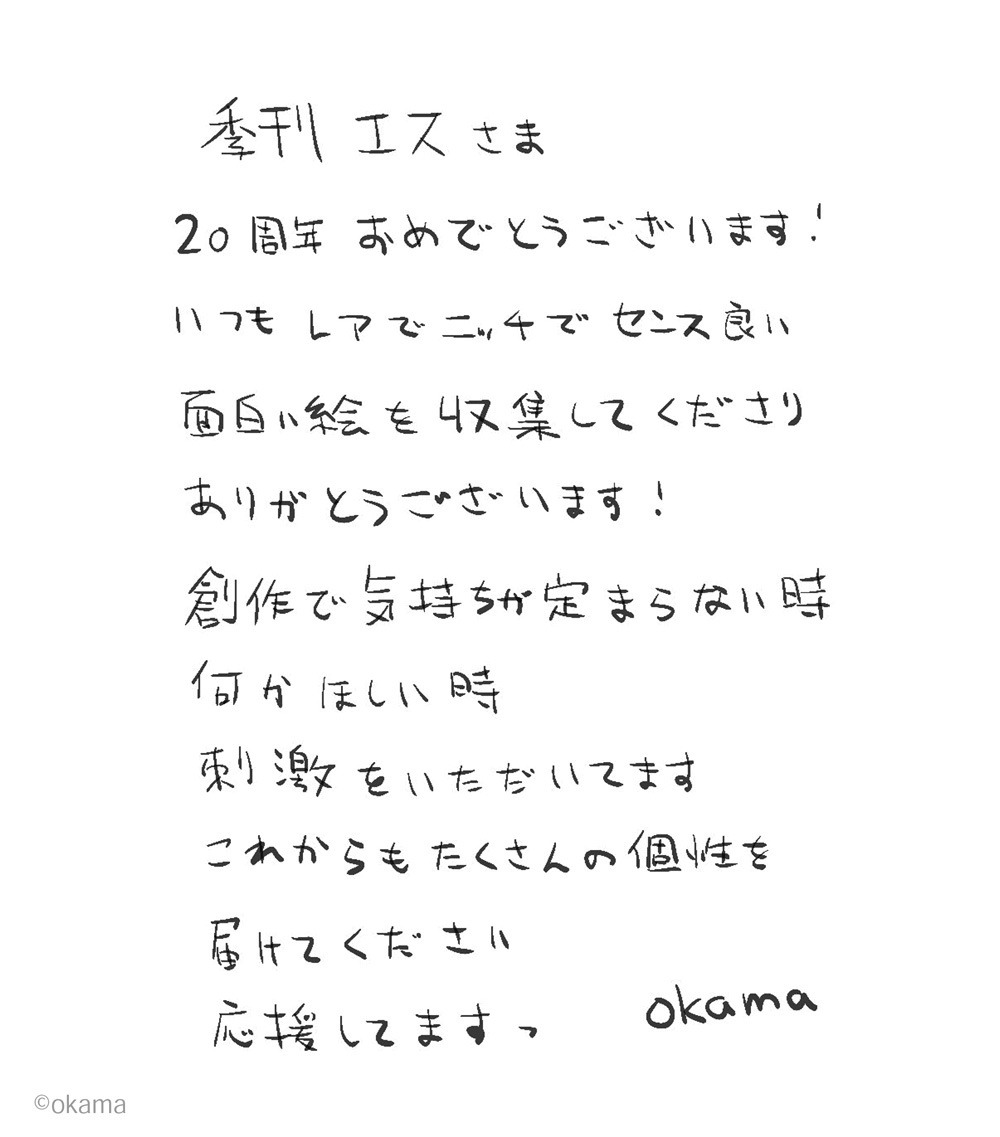 季刊 エスさま
20周年 おめでとうございます!
いつも レアで ニッチで センス良い
面白い絵を収集してくださり
ありがとうございます!
創作で気持ちが定まらない時
何か ほしい 時
刺激をいただいてます
これからも たくさんの個性を
届けてください
応援してますっ
okama
©okama